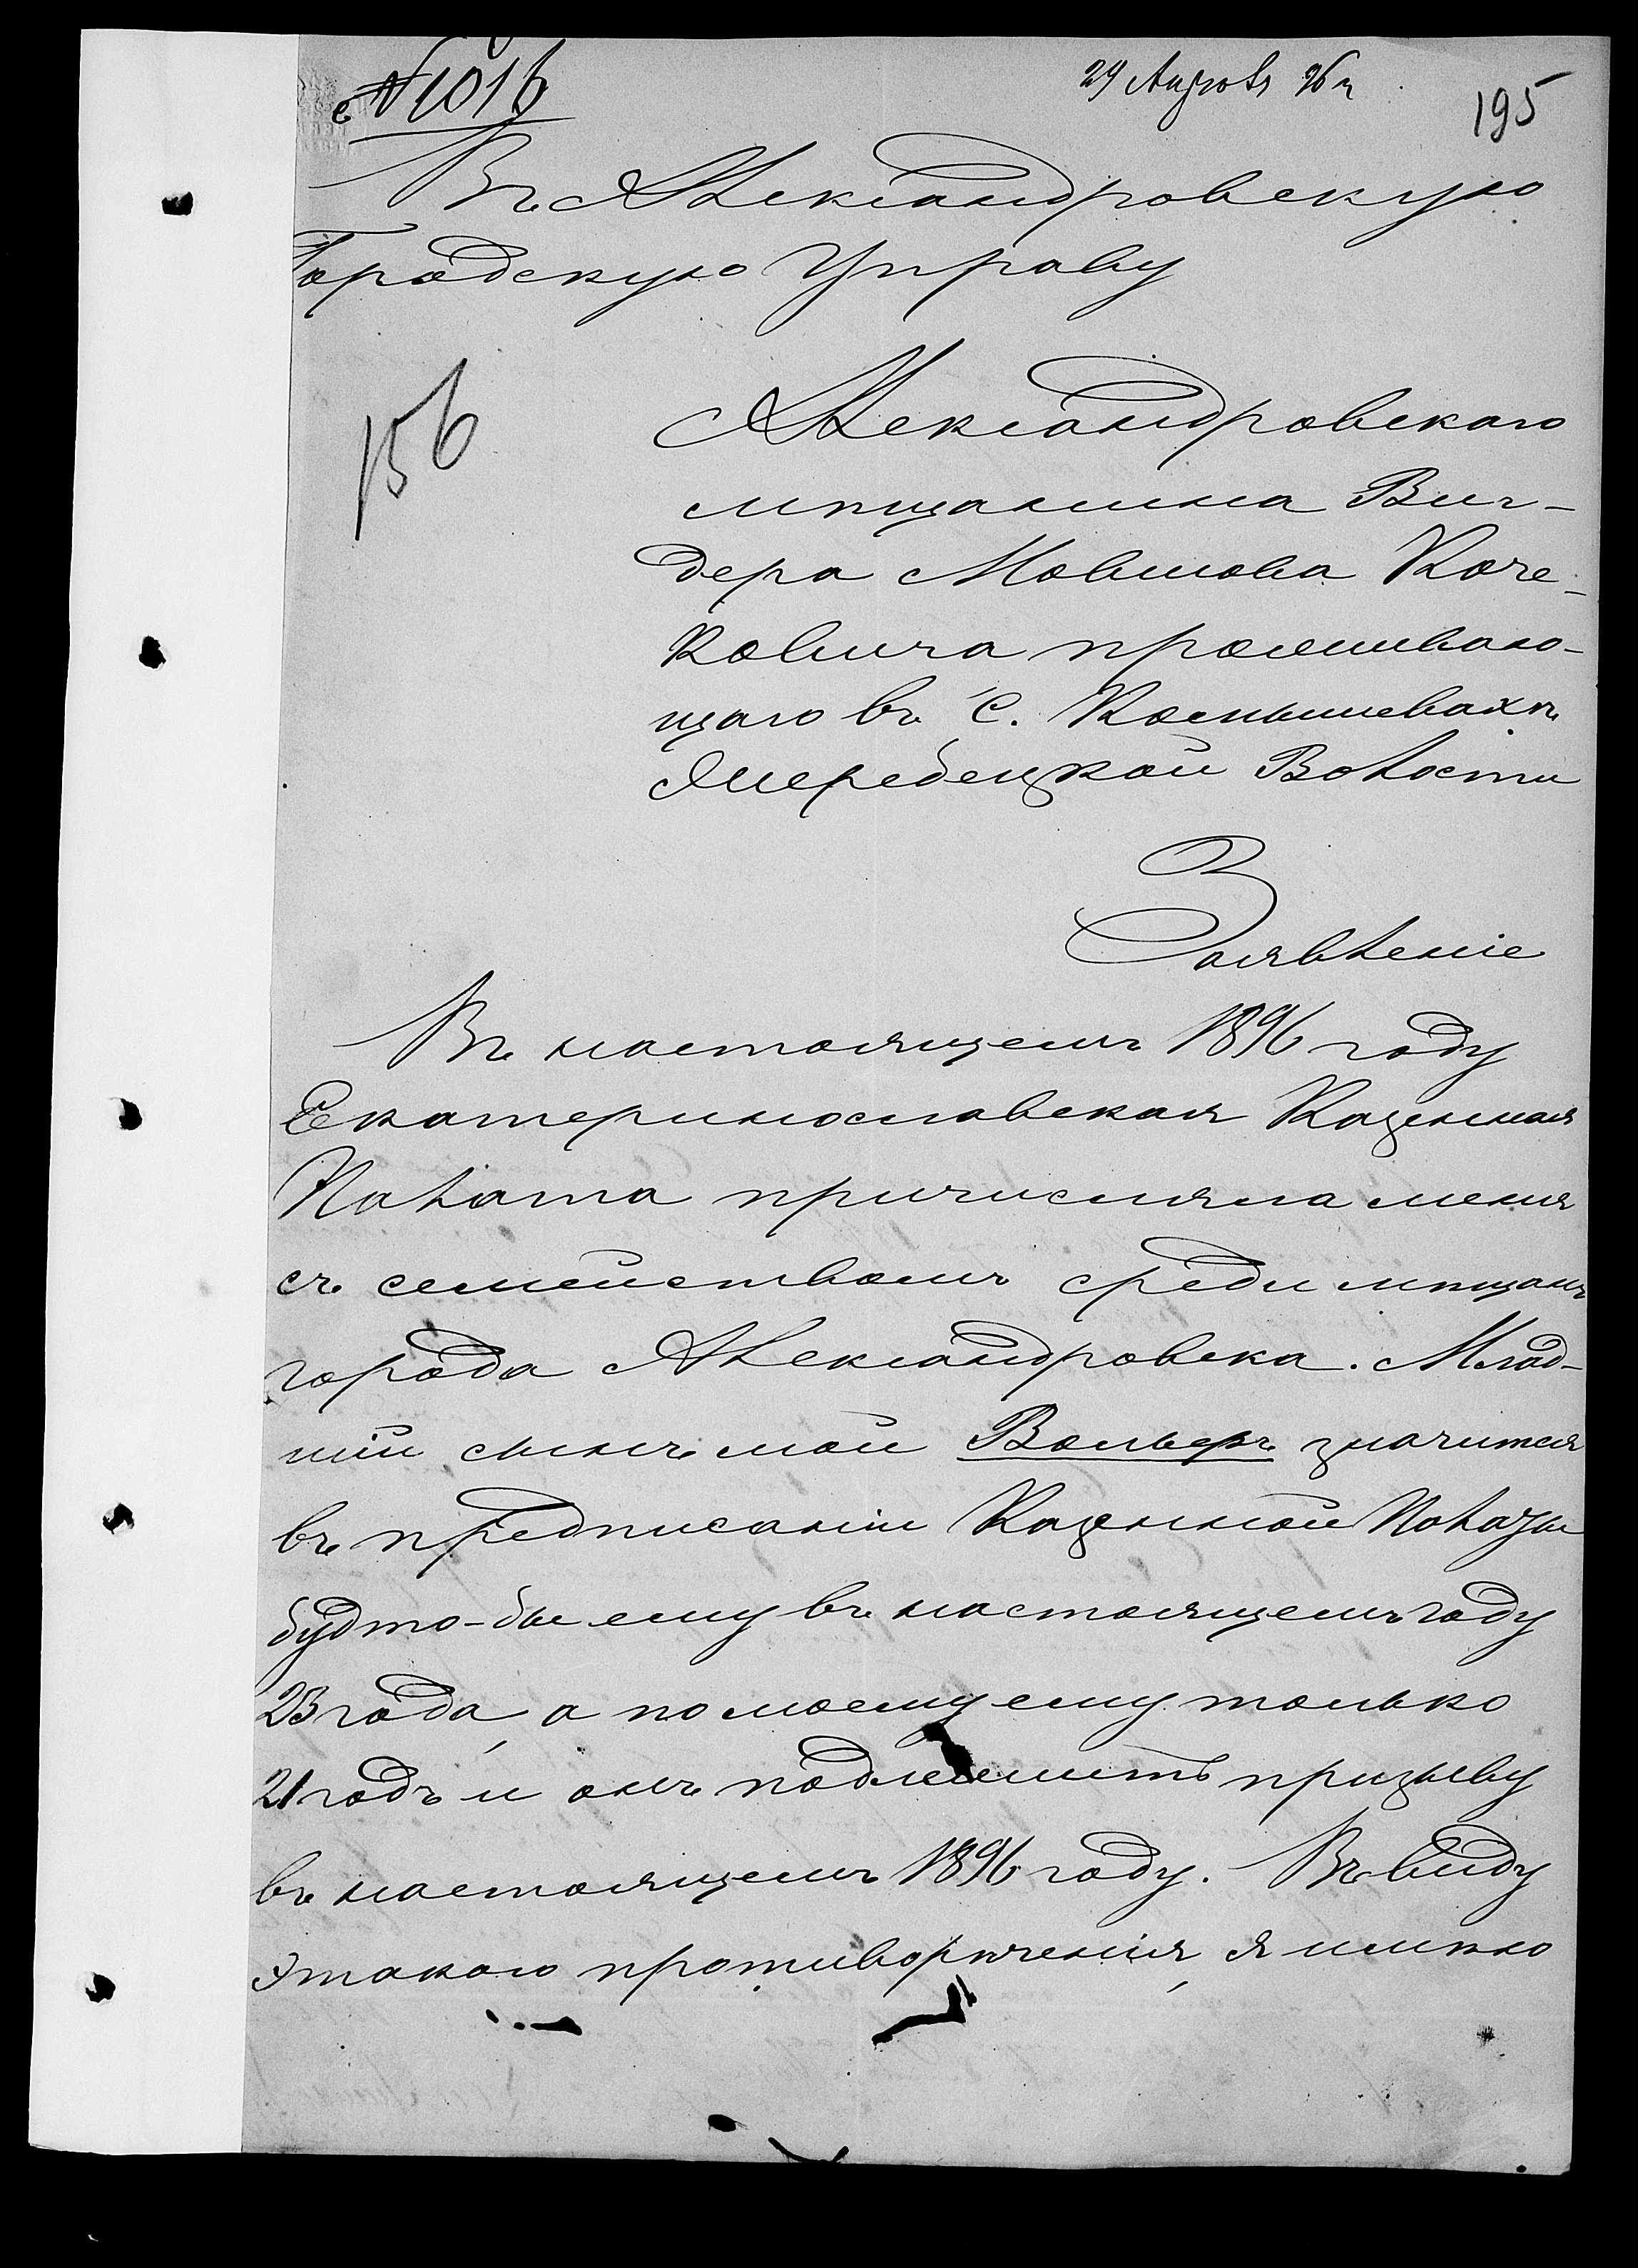 № 1016
29 Августа 96 г.
195
Въ Александровскую
Городскую Управу
156
Александровскаго
мѣщанина Виг-
дера Мовшова Коче-
ковича проживаю-
щаго въ С. Комышевахѣ
Жеребецкой Волости
Заявленіе
Въ настоящемъ 1896 году
Екатеринославская Казенная
Палата причисляла меня
съ семействомъ среди мѣщанъ
города Александровска. Млад-
шій сынъ мой Вольеръ значится
въ предписаніи Казенной Палаты
будто-бы ему въ настоящемъ году
23 года, а по моему ему только
21 годъ и онъ подлежитъ призыву
въ настоящемъ 1896 году. Въ виду
этакого противорѣчения, я имѣю